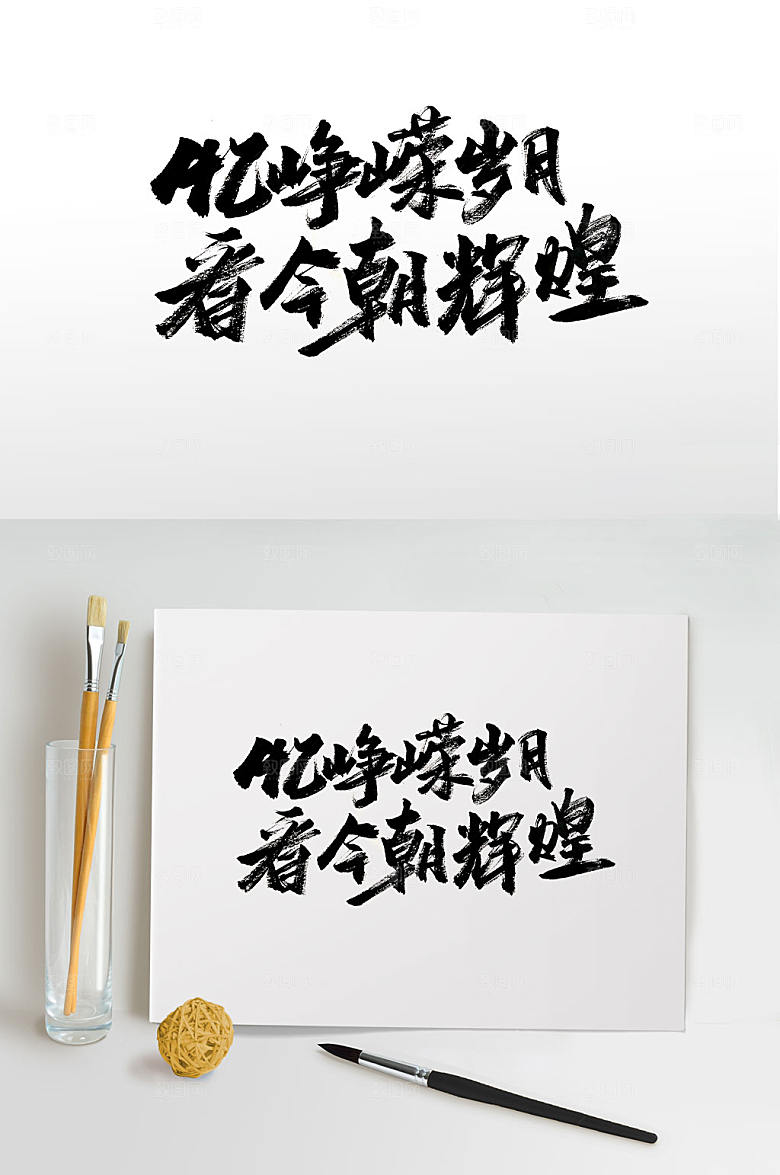 忆峥嵘岁月
看今朝辉煌
忆峥嵘岁月
看今朝辉煌